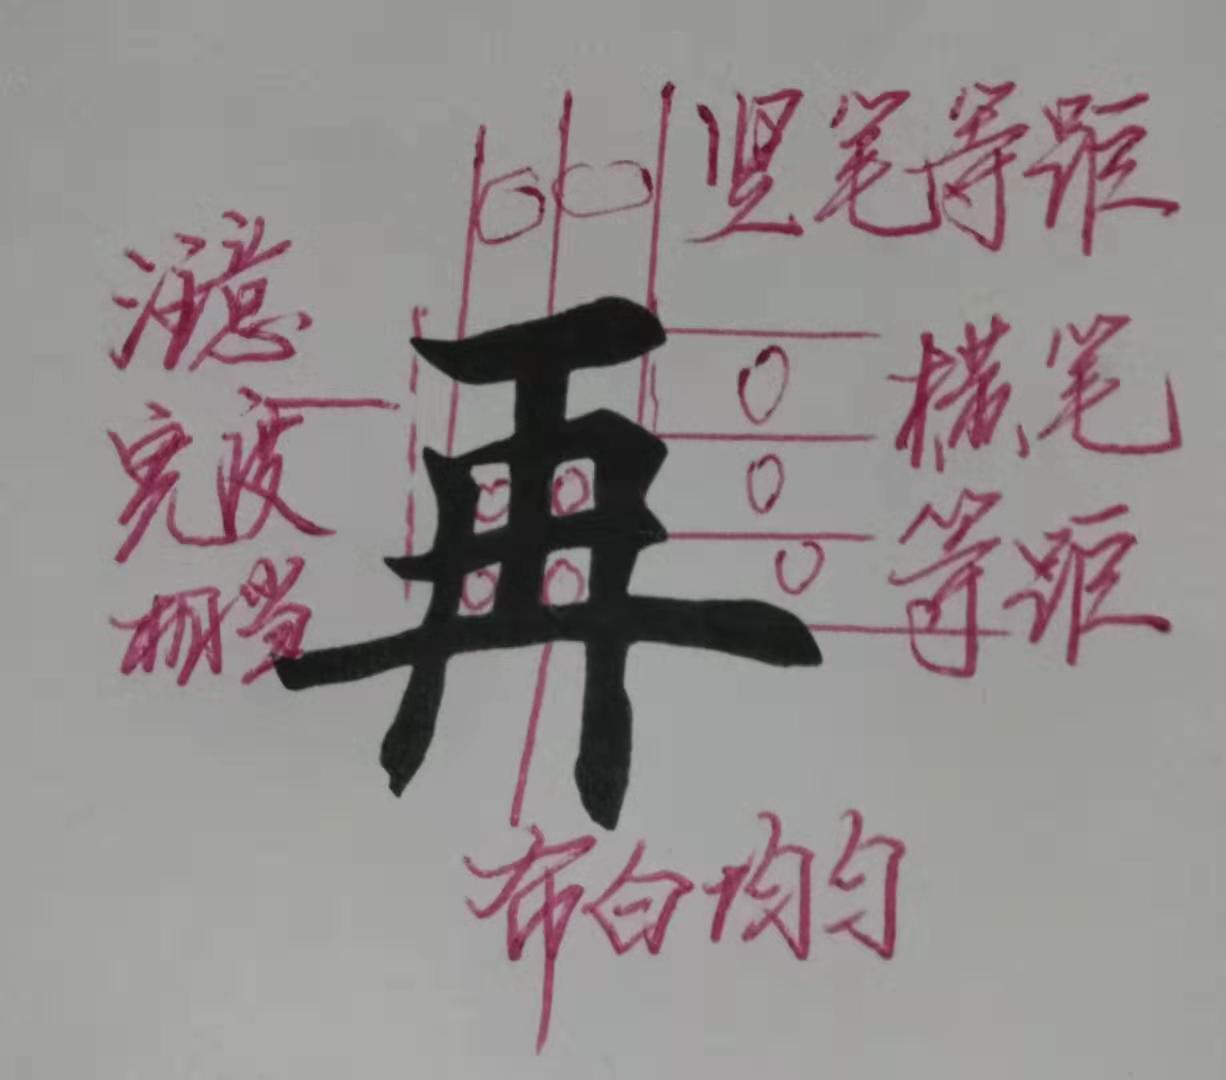 竖笔等距
注意
宽度
相当
横笔
等距
再
布白均匀